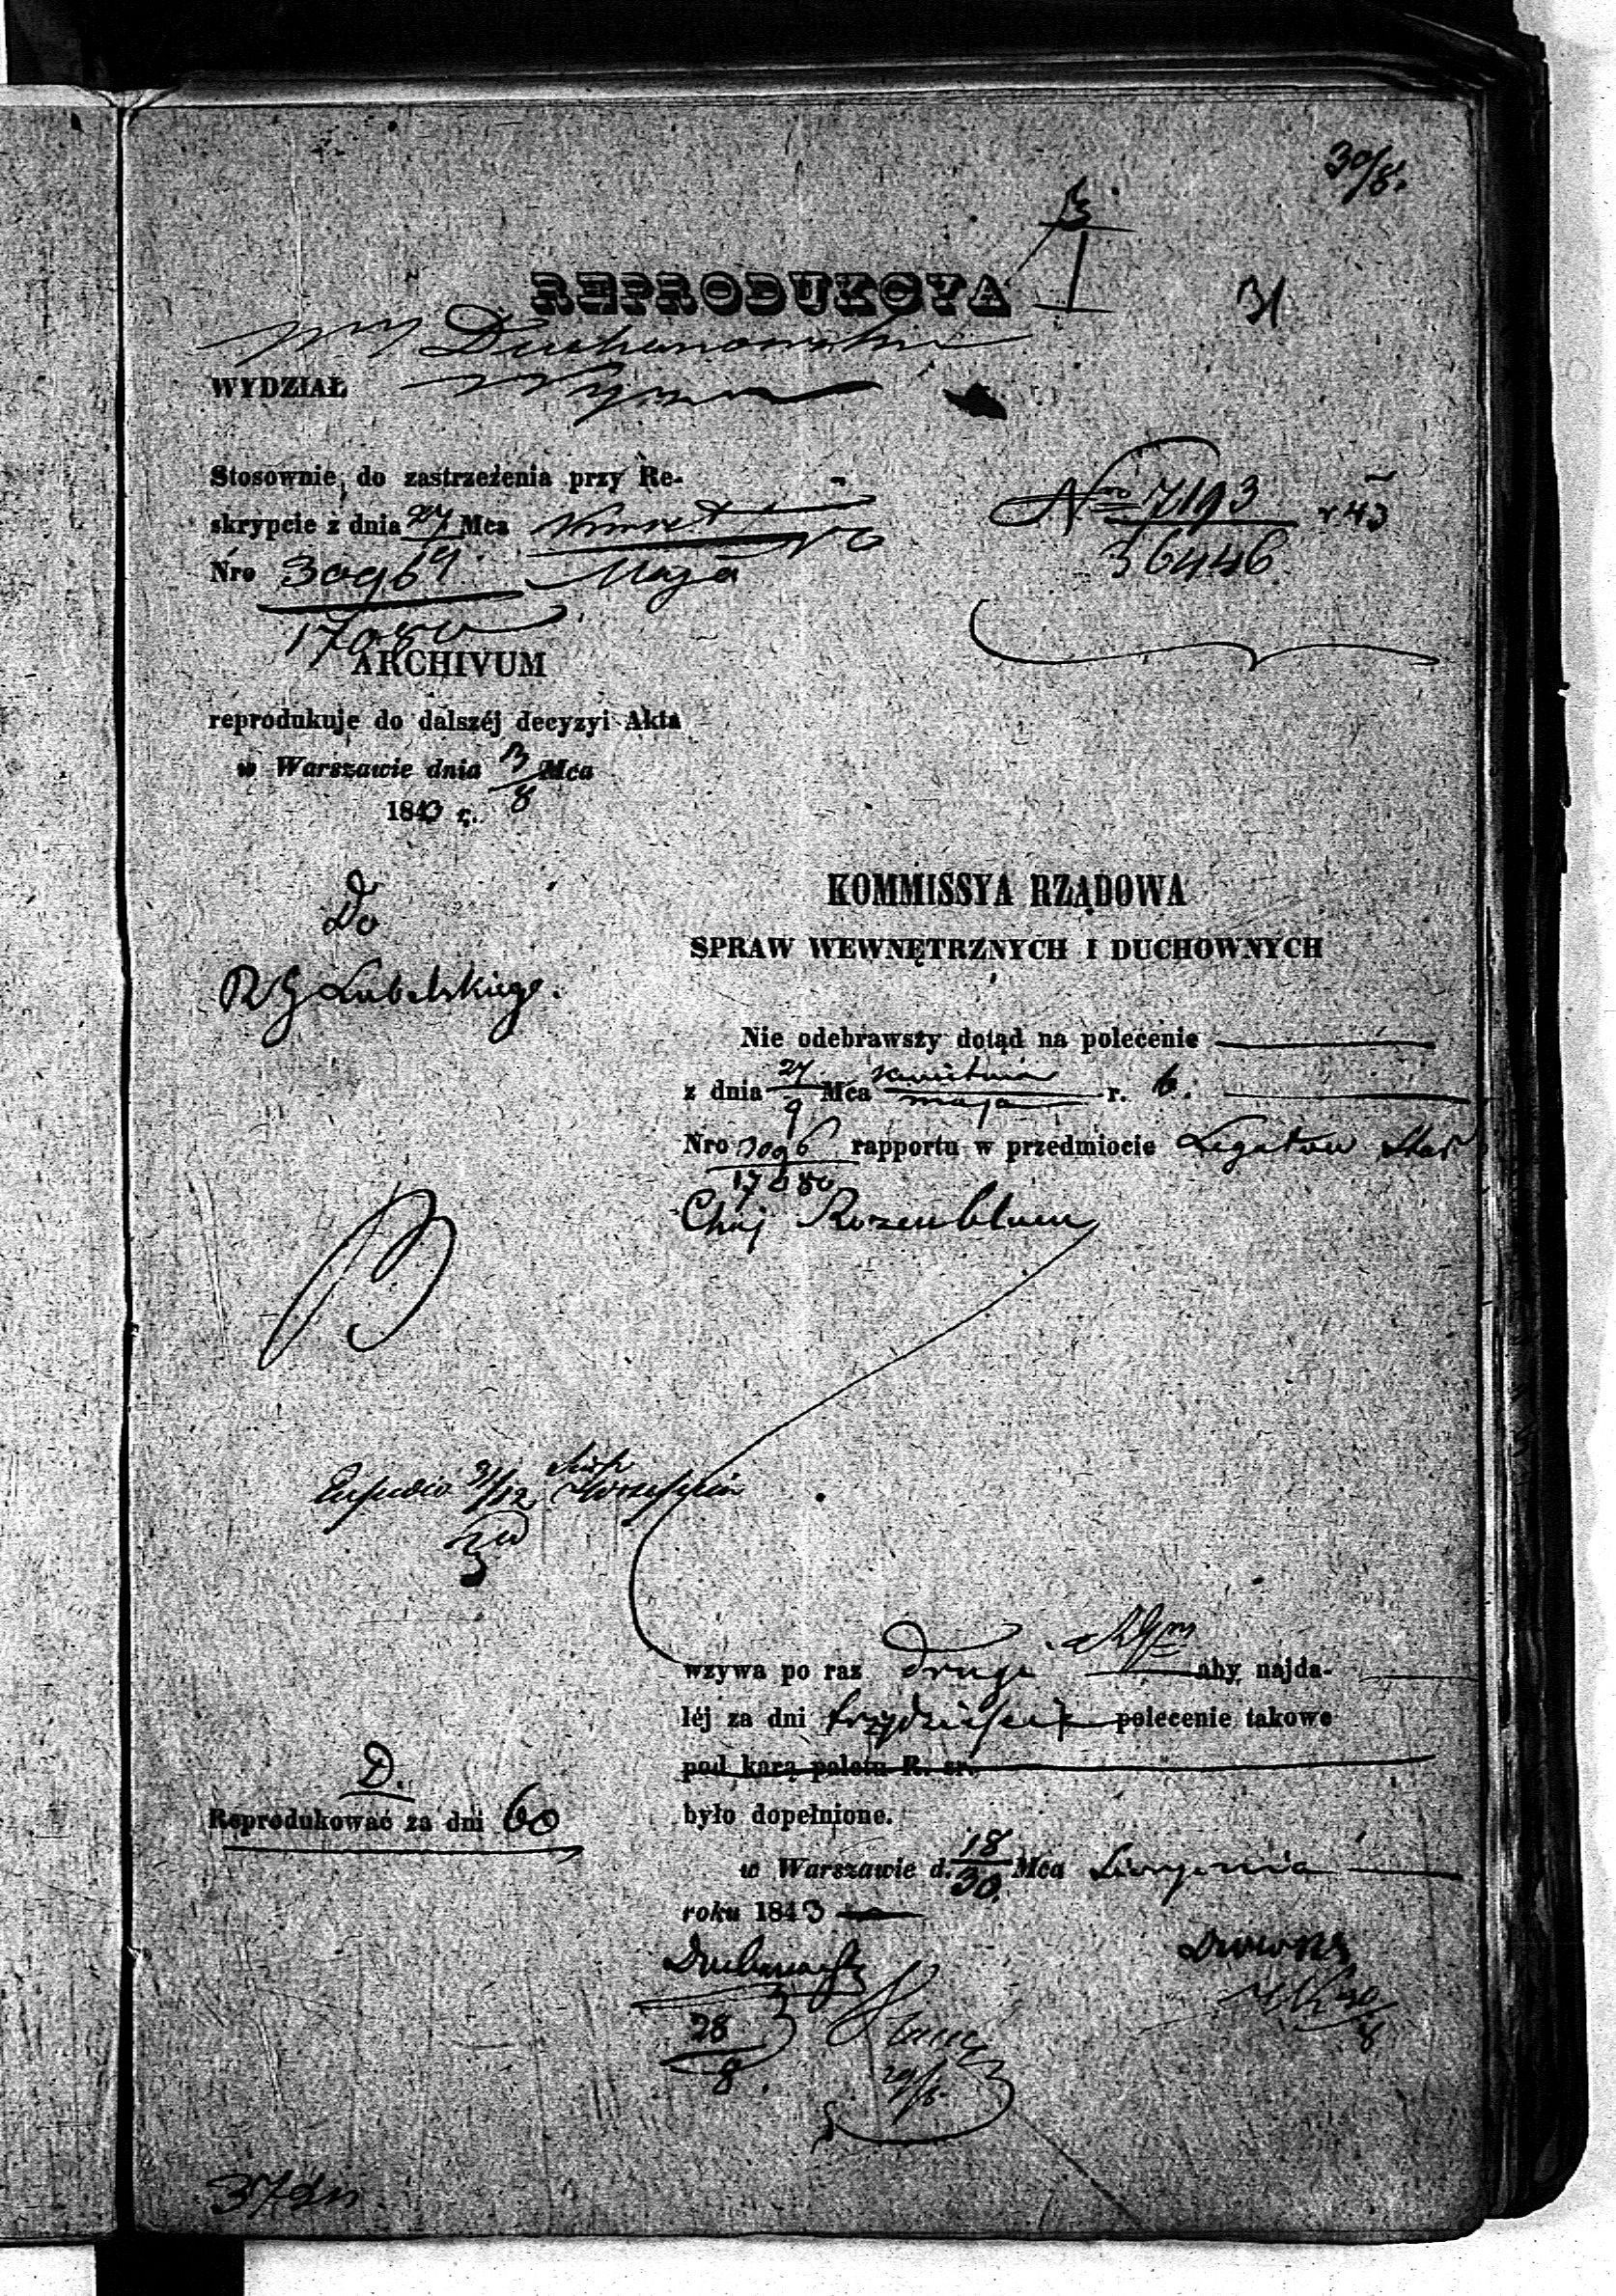 30/8.
REPRODUKCYA
31
Duchanowski
WYDZIAŁ Wyzn
Stosownie do zastrzeżenia przy Re-
skrypcie z dnia 27/9 Mca Kwiet
Nro 3096 Maja
17080
Nro 7193 r 43
36446
ARCHIVUM
reprodukuje do dalszéj decyzyi Akta
w Warszawie dnia 13/8 Mca
1843 r.
Do
RG Lubelskiego.
KOMMISSYA RZĄDOWA
SPRAW WEWNĘTRZNYCH I DUCHOWNYCH
Nie odebrawszy dotąd na polecenie
z dnia 27/9 Mca kwietnia/maja r. b.
Nro 3096/17080 rapportu w przedmiocie Legatów Star
Chaj Rozenblum
31/12
wzywa po raz drugi RGm aby najda-
léj za dni trzydzieści polecenie takowe
pod karą poletu R. sr.
było dopełnione.
D.
Reprodukować za dni 60
w Warszawie d. 18/30. Mca Sierpnia
roku 1843
28/8.
29/8
30/8